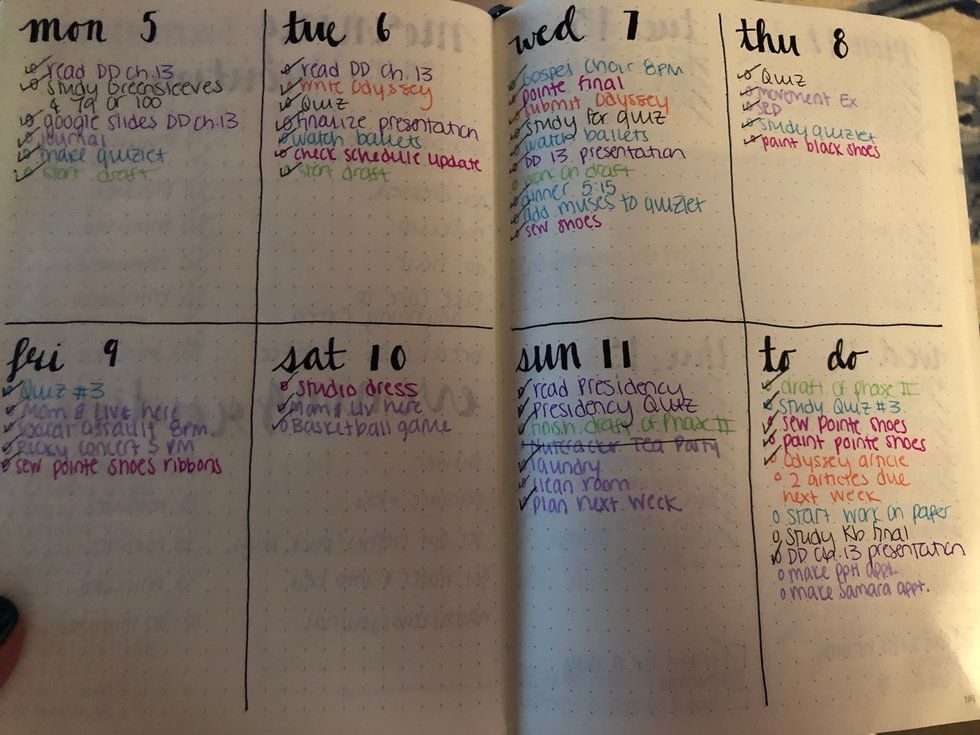 mon 5
read DD ch. 13
study Greensleeves
& 79 or 100
google slides DD ch. 13
journal
make quizlet
start draft
tue 6
read DD ch. 13
write Odyssey
Quiz
finalize presentation
watch ballets
check schedule update
start draft
wed 7
Gospel Choir 8pm
pointe final
submit Odyssey
study for quiz
watch ballets
DD 13 presentation
work on draft
dinner 5:15
add muses to quizlet
sew shoes
thu 8
Quiz
movement Ex
SED
study quizlet
paint black shoes
fri 9
Quiz #3
Mom & Livi here
assault 8pm
Ricky concert 5 PM
sew pointe shoes ribbons
sat 10
studio dress
Mom & Livi here
Basketball game
sun 11
read Presidency
Presidency Quiz
finish draft of phase II
Nutcracker Tea Party
laundry
clean room
plan next week
to do
draft of phase II
study Quiz #3
sew pointe shoes
paint pointe shoes
Odyssey article
2 articles due
next week
start work on paper
study Kb final
DD ch. 13 presentation
make appt.
make Samara appt.